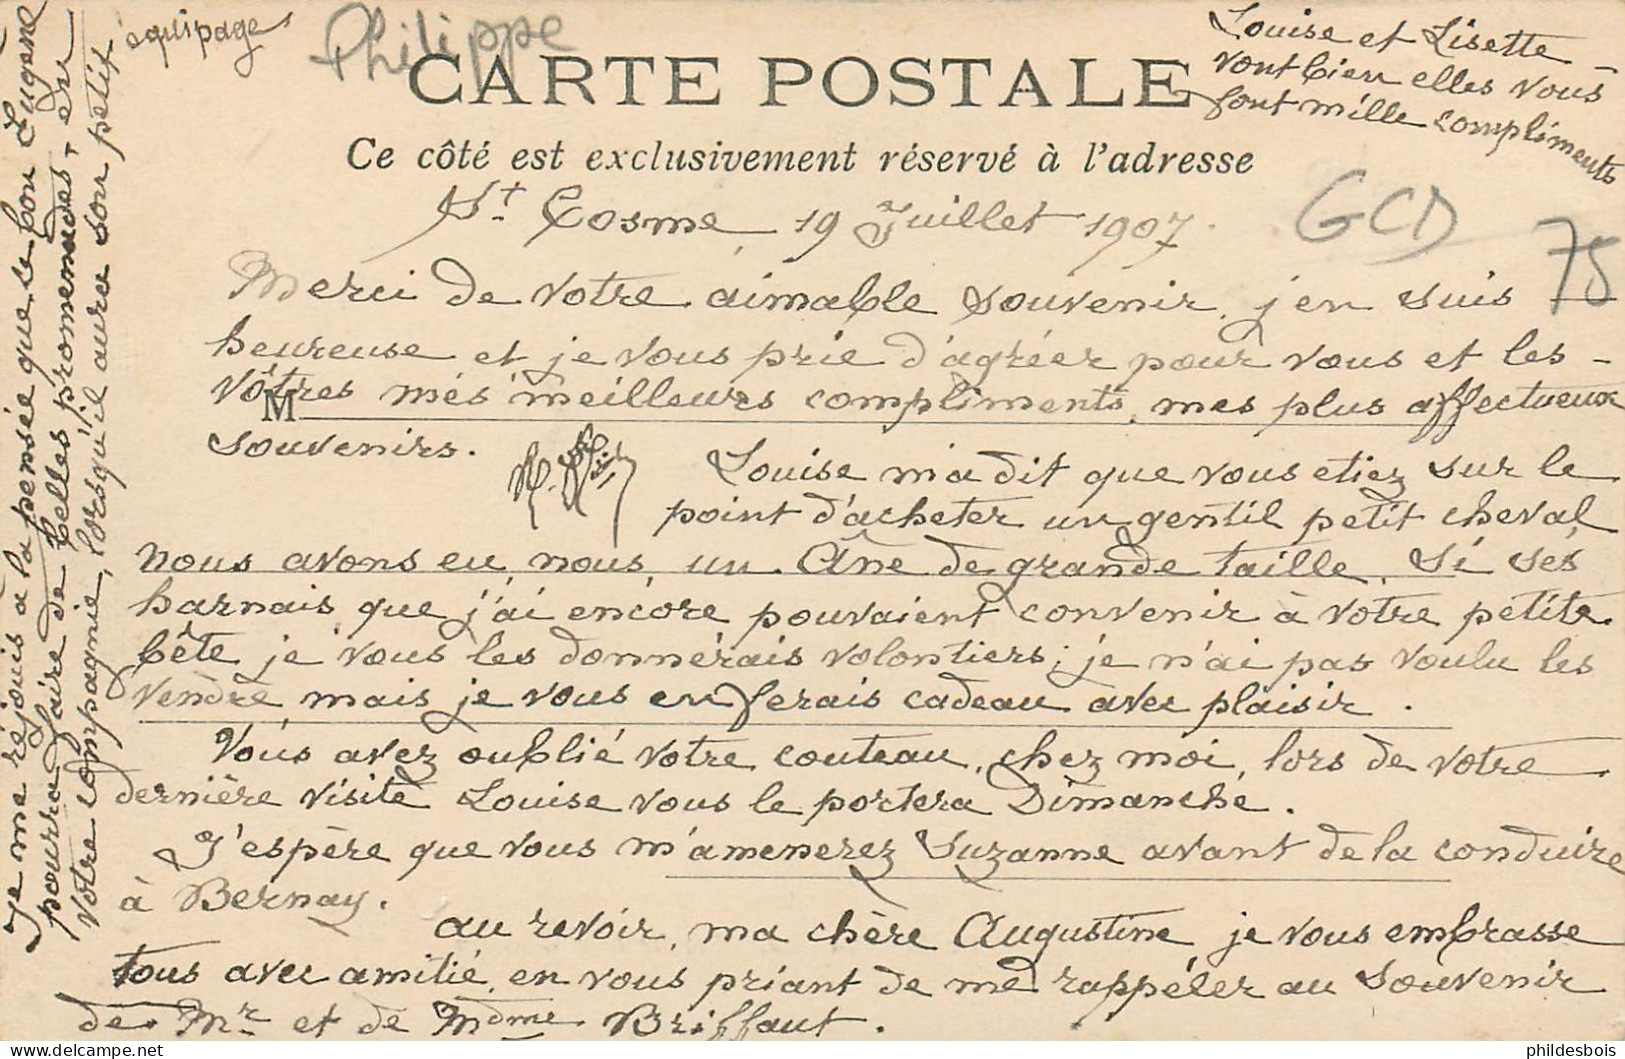 Philippe
CARTE POSTALE
Ce côté est exclusivement réservé à l'adresse
St Cosme, 19 Juillet 1907.
GCD
75
Merci de votre aimable souvenir, j'en suis
heureuse et je vous prie d'agréer pour vous et les
vôtres mes meilleurs compliments, mes plus affectueux
M
souvenirs.
Louise m'a dit que vous etiez sur le
point d'acheter un gentil petit cheval
nous avons eu, nous, un Âne de grande taille. Si ses
harnais que j'ai encore pouvaient convenir à votre petite
bête je vous les donnerais volontiers; je n'ai pas voulu les
vendre mais je vous en ferais cadeau avec plaisir.
Vous avez oublié votre couteau, chez moi, lors de votre
dernière visite Louise vous le portera Dimanche.
J'espère que vous m'amenerez Suzanne avant de la conduire
à Bernay.
au revoir, ma chère Augustine je vous embrasse
tous avec amitié, en vous priant de me rappeler au souvenir
de Mr et de Mdme Briffaut.
Je me réjouis à la pensée que le bon Eugene
pourra faire de belles promenades, en
votre compagnie, lorsqu'il aura son petit
équipage
Louise et Lisette
vont bien elles vous
font mille compliments
phildesbois